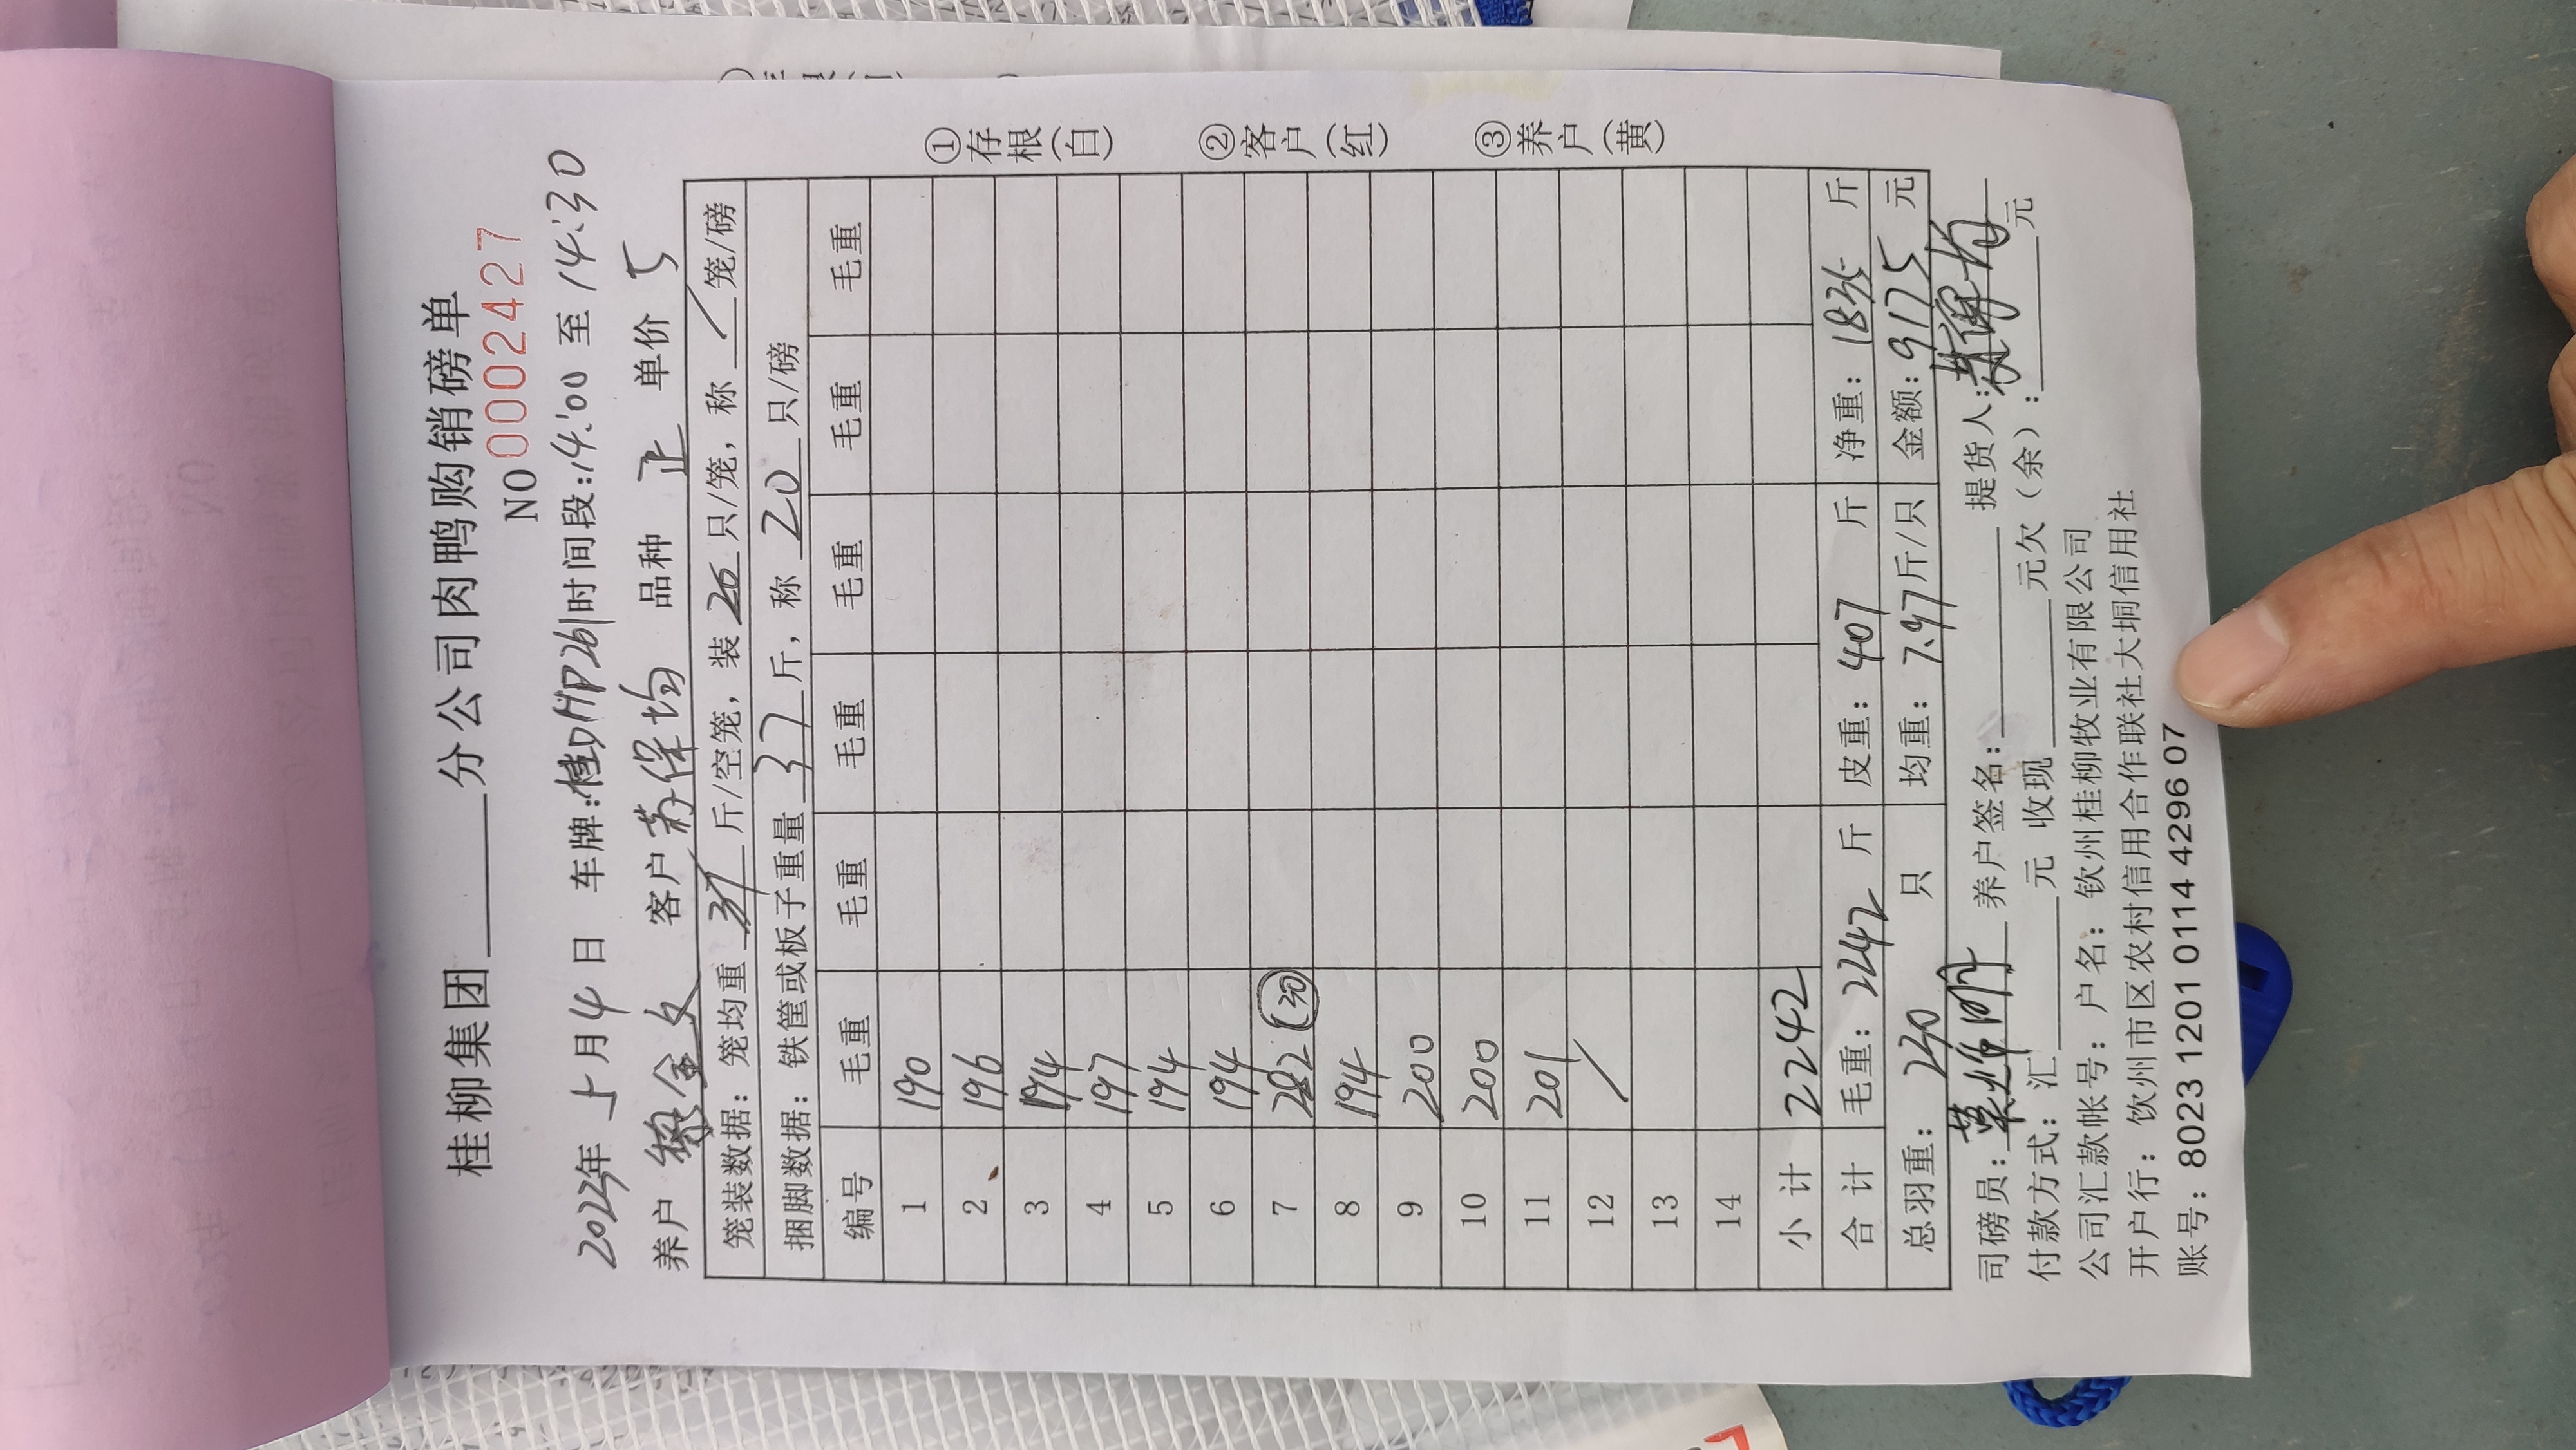 桂柳集团______分公司肉鸭购销磅单
NO 0002427
2023年 5月4日 车牌:桂DHP261 时间段:14:00 至 14:30
养户 金文 客户 苏保均 品种 正 单价 5
笼装数据: 笼均重 37 斤/空笼, 装 26 只/笼, 称 / 笼/磅
捆脚数据: 铁筐或板子重量 37 斤, 称 20 只/磅
编号 毛重 毛重 毛重 毛重 毛重 毛重
1 190
2 196
3 194
4 197
5 194
6 194
7 282 (30)
8 194
9 200
10 200
11 201
12 /
13
14
小计 2242
合计 毛重: 2242 斤 皮重: 407 斤 净重: 1835 斤
总羽重: 230 只 均重: 7.97 斤/只 金额: 9175 元
司磅员: 养户签名: 提货人:
付款方式: 汇______元 收现______元欠(余):______元
公司汇款帐号: 户名: 钦州桂柳牧业有限公司
开户行: 钦州市区农村信用合作联社大垌信用社
账号: 8023 1201 0114 4296 07
①存根(白) ②客户(红) ③养户(黄)